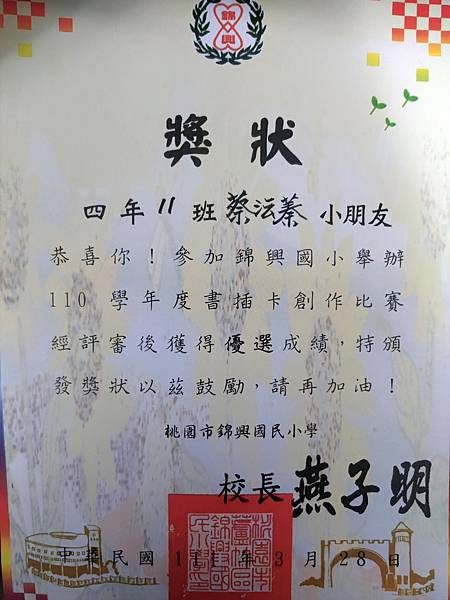 錦興
獎狀
四年11班蔡沄蓁小朋友
恭喜你！參加錦興國小舉辦
110學年度書插卡創作比賽
經評審後獲得優選成績，特頒
發獎狀以茲鼓勵，請再加油！
桃園市錦興國民小學
校長 燕子明
中華民國111年3月28日